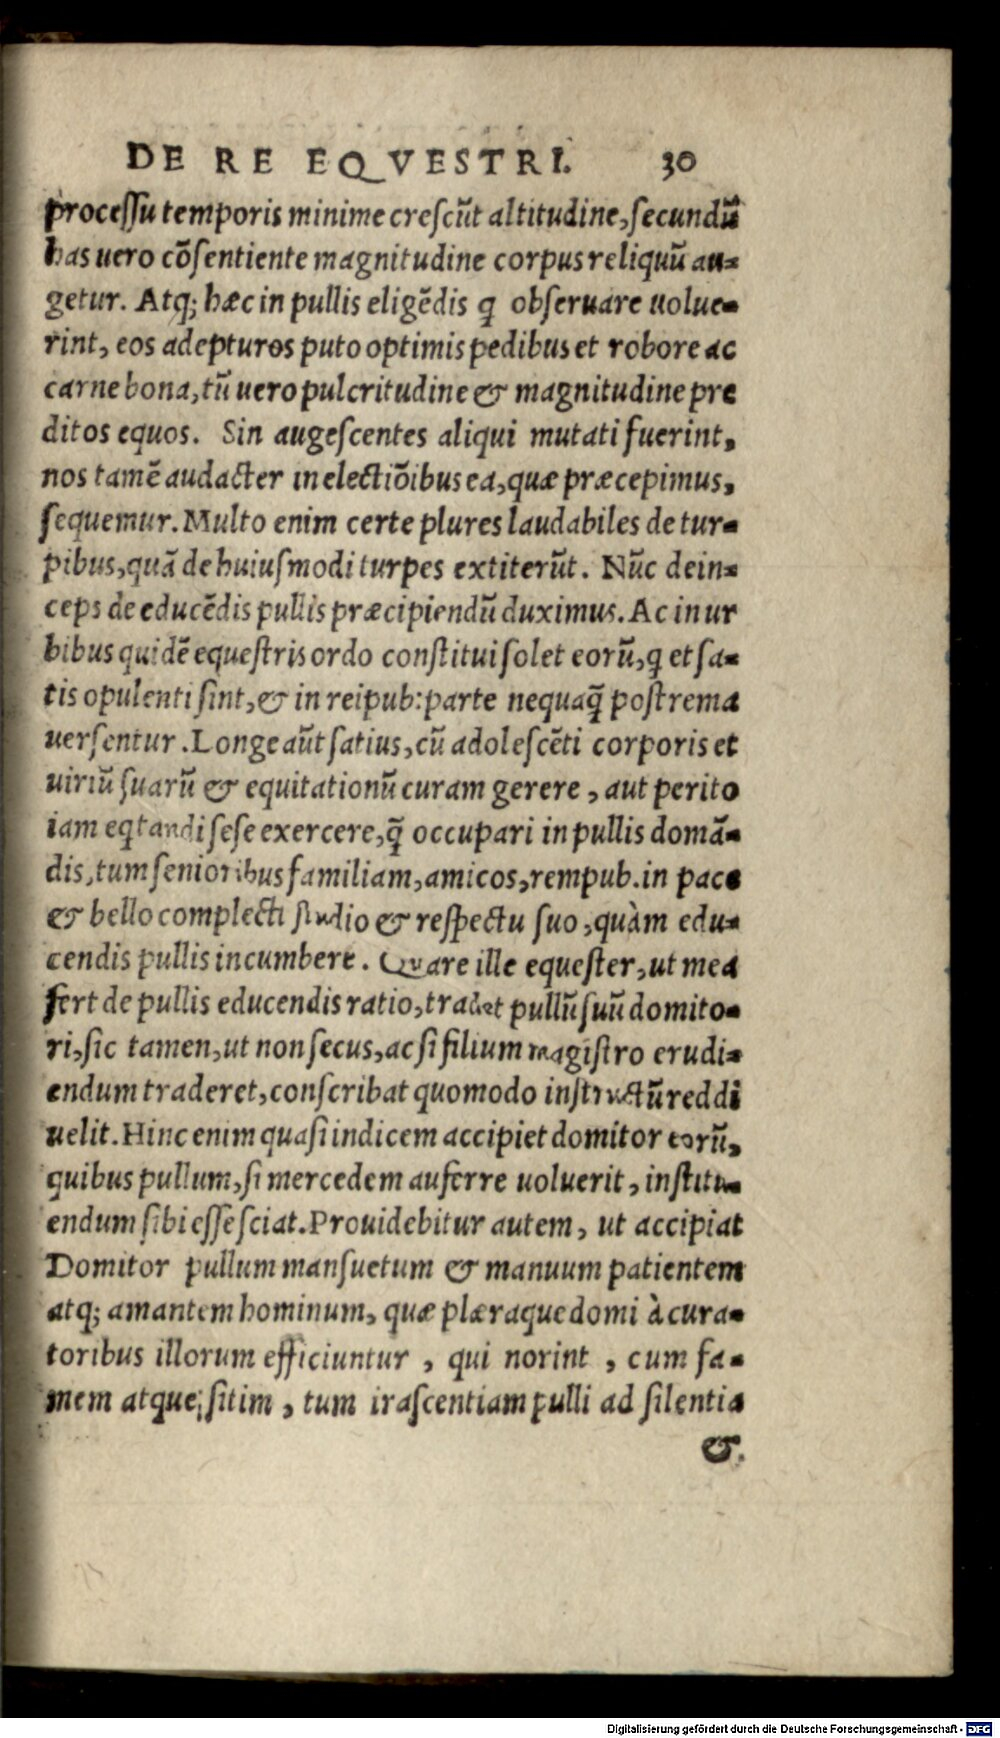 DE RE EQVESTRI. 30
processu temporis minime crescūt altitudine, secundū
has uero cōsentiente magnitudine corpus reliquū au-
getur. Atq; hæc in pullis eligēdis q obseruare uolue-
rint, eos adepturos puto optimis pedibus et robore ac
carne bona, tū uero pulcritudine & magnitudine pre
ditos equos. Sin augescentes aliqui mutati fuerint,
nos tamē audacter in electiōibus ea, quæ præcepimus,
sequemur. Multo enim certe plures laudabiles de tur-
pibus, quā de huiusmodi turpes extiterūt. Nūc dein-
ceps de educēdis pullis præcipiendū duximus. Ac in ur
bibus quidē equestris ordo constitui solet eorū, q et sa-
tis opulenti sint, & in reipub: parte nequaq̄ postrema
uersentur. Longe aūt satius, cū adolescēti corporis et
uiriū suarū & equitationū curam gerere, aut perito
iam eqtandi sese exercere, q̄ occupari in pullis domā-
dis, tum senioribus familiam, amicos, rempub. in pace
& bello complecti studio & respectu suo, quàm edu-
cendis pullis incumbere. Quare ille equester, ut mea
fert de pullis educendis ratio, tradet pullū suū domito-
ri, sic tamen, ut non secus, ac si filium magistro erudi-
endum traderet, conscribat quomodo instructū reddi
uelit. Hinc enim quasi indicem accipiet domitor eorū,
quibus pullum, si mercedem auferre uoluerit, institu-
endum sibi esse sciat. Prouidebitur autem, ut accipiat
Domitor pullum mansuetum & manuum patientem
atq; amantem hominum, quæ plæraque domi à cura-
toribus illorum efficiuntur, qui norint, cum fa-
mem atque; sitim, tum irascentiam pulli ad silentia
&.
Digitalisierung gefördert durch die Deutsche Forschungsgemeinschaft - DFG